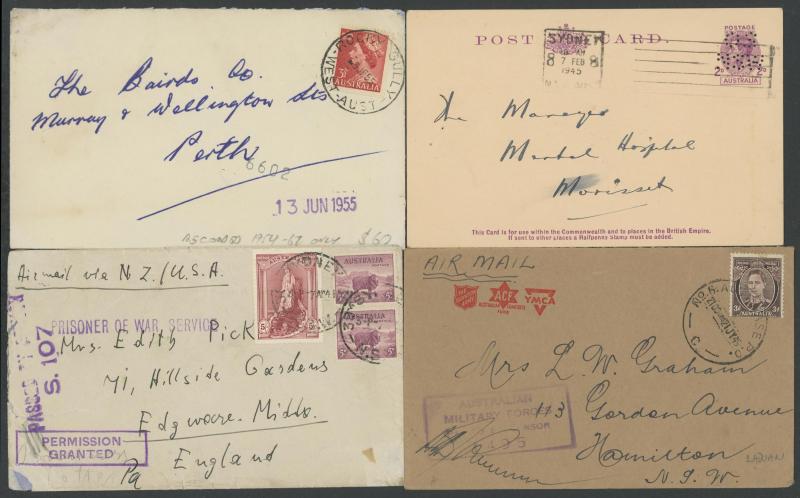 The Bairds Co.
Murray & Wellington Sts
Perth
6602
13 JUN 1955
RECORDED 1954-67 ONLY $60
ROCKY GULLY
WEST AUST
3D
AUSTRALIA
POST CARD.
POSTAGE
2D 2D
AUSTRALIA
SYDNEY
8 8
7 FEB
1945
The Manager
Mental Hospital
Morisset
This Card is for use within the Commonwealth and to places in the British Empire.
If sent to other places a Halfpenny Stamp must be added.
Airmail via N.Z/U.S.A.
PRISONER OF WAR SERVICE
PASSED BY
S. 107
Mrs. Edith Pick
71, Hillside Gardens
Edgware. Middx.
England
PERMISSION
GRANTED
SYDNEY
AUSTRALIA
AUSTRALIA
AIR MAIL
ACF
YMCA
Mrs L. W. Graham
113
Gordon Avenue
Hamilton
N.S.W.
AUSTRALIAN
MILITARY FORCES
LABUAN
3D
AUSTRALIA